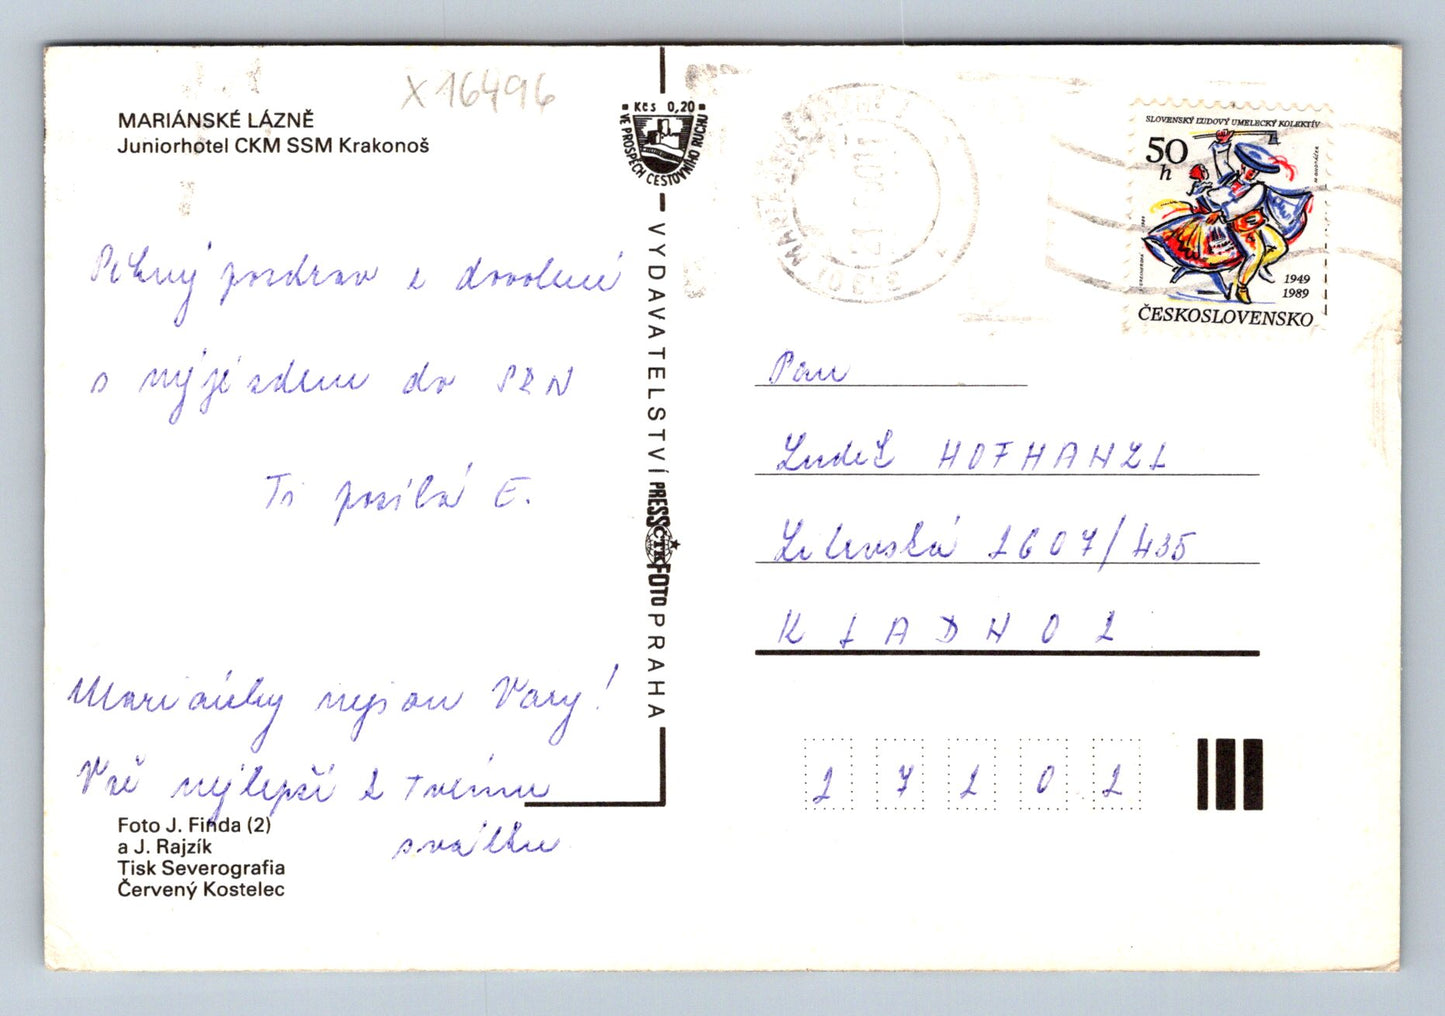 X 16496
MARIÁNSKÉ LÁZNĚ
Juniorhotel CKM SSM Krakonoš
Pěkný pozdrav z dovolené
s výjezdem do SRN
Ti posílá E.
Mariánky nejsou Vary!
Vše nejlepší k Tvému
svátku
Foto J. Finda (2)
a J. Rajzík
Tisk Severografia
Červený Kostelec
Kčs 0,20
VE PROSPĚCH CESTOVNÍHO RUCHU
VYDAVATELSTVÍ PRESSFOTO PRAHA
ČTK
SLOVENSKÝ ĽUDOVÝ UMELECKÝ KOLEKTÍV
50 h
1949
1989
ČESKOSLOVENSKO
353 01
Pan
Luděk HOFHANZL
2607/435
KLADNO 2
27202